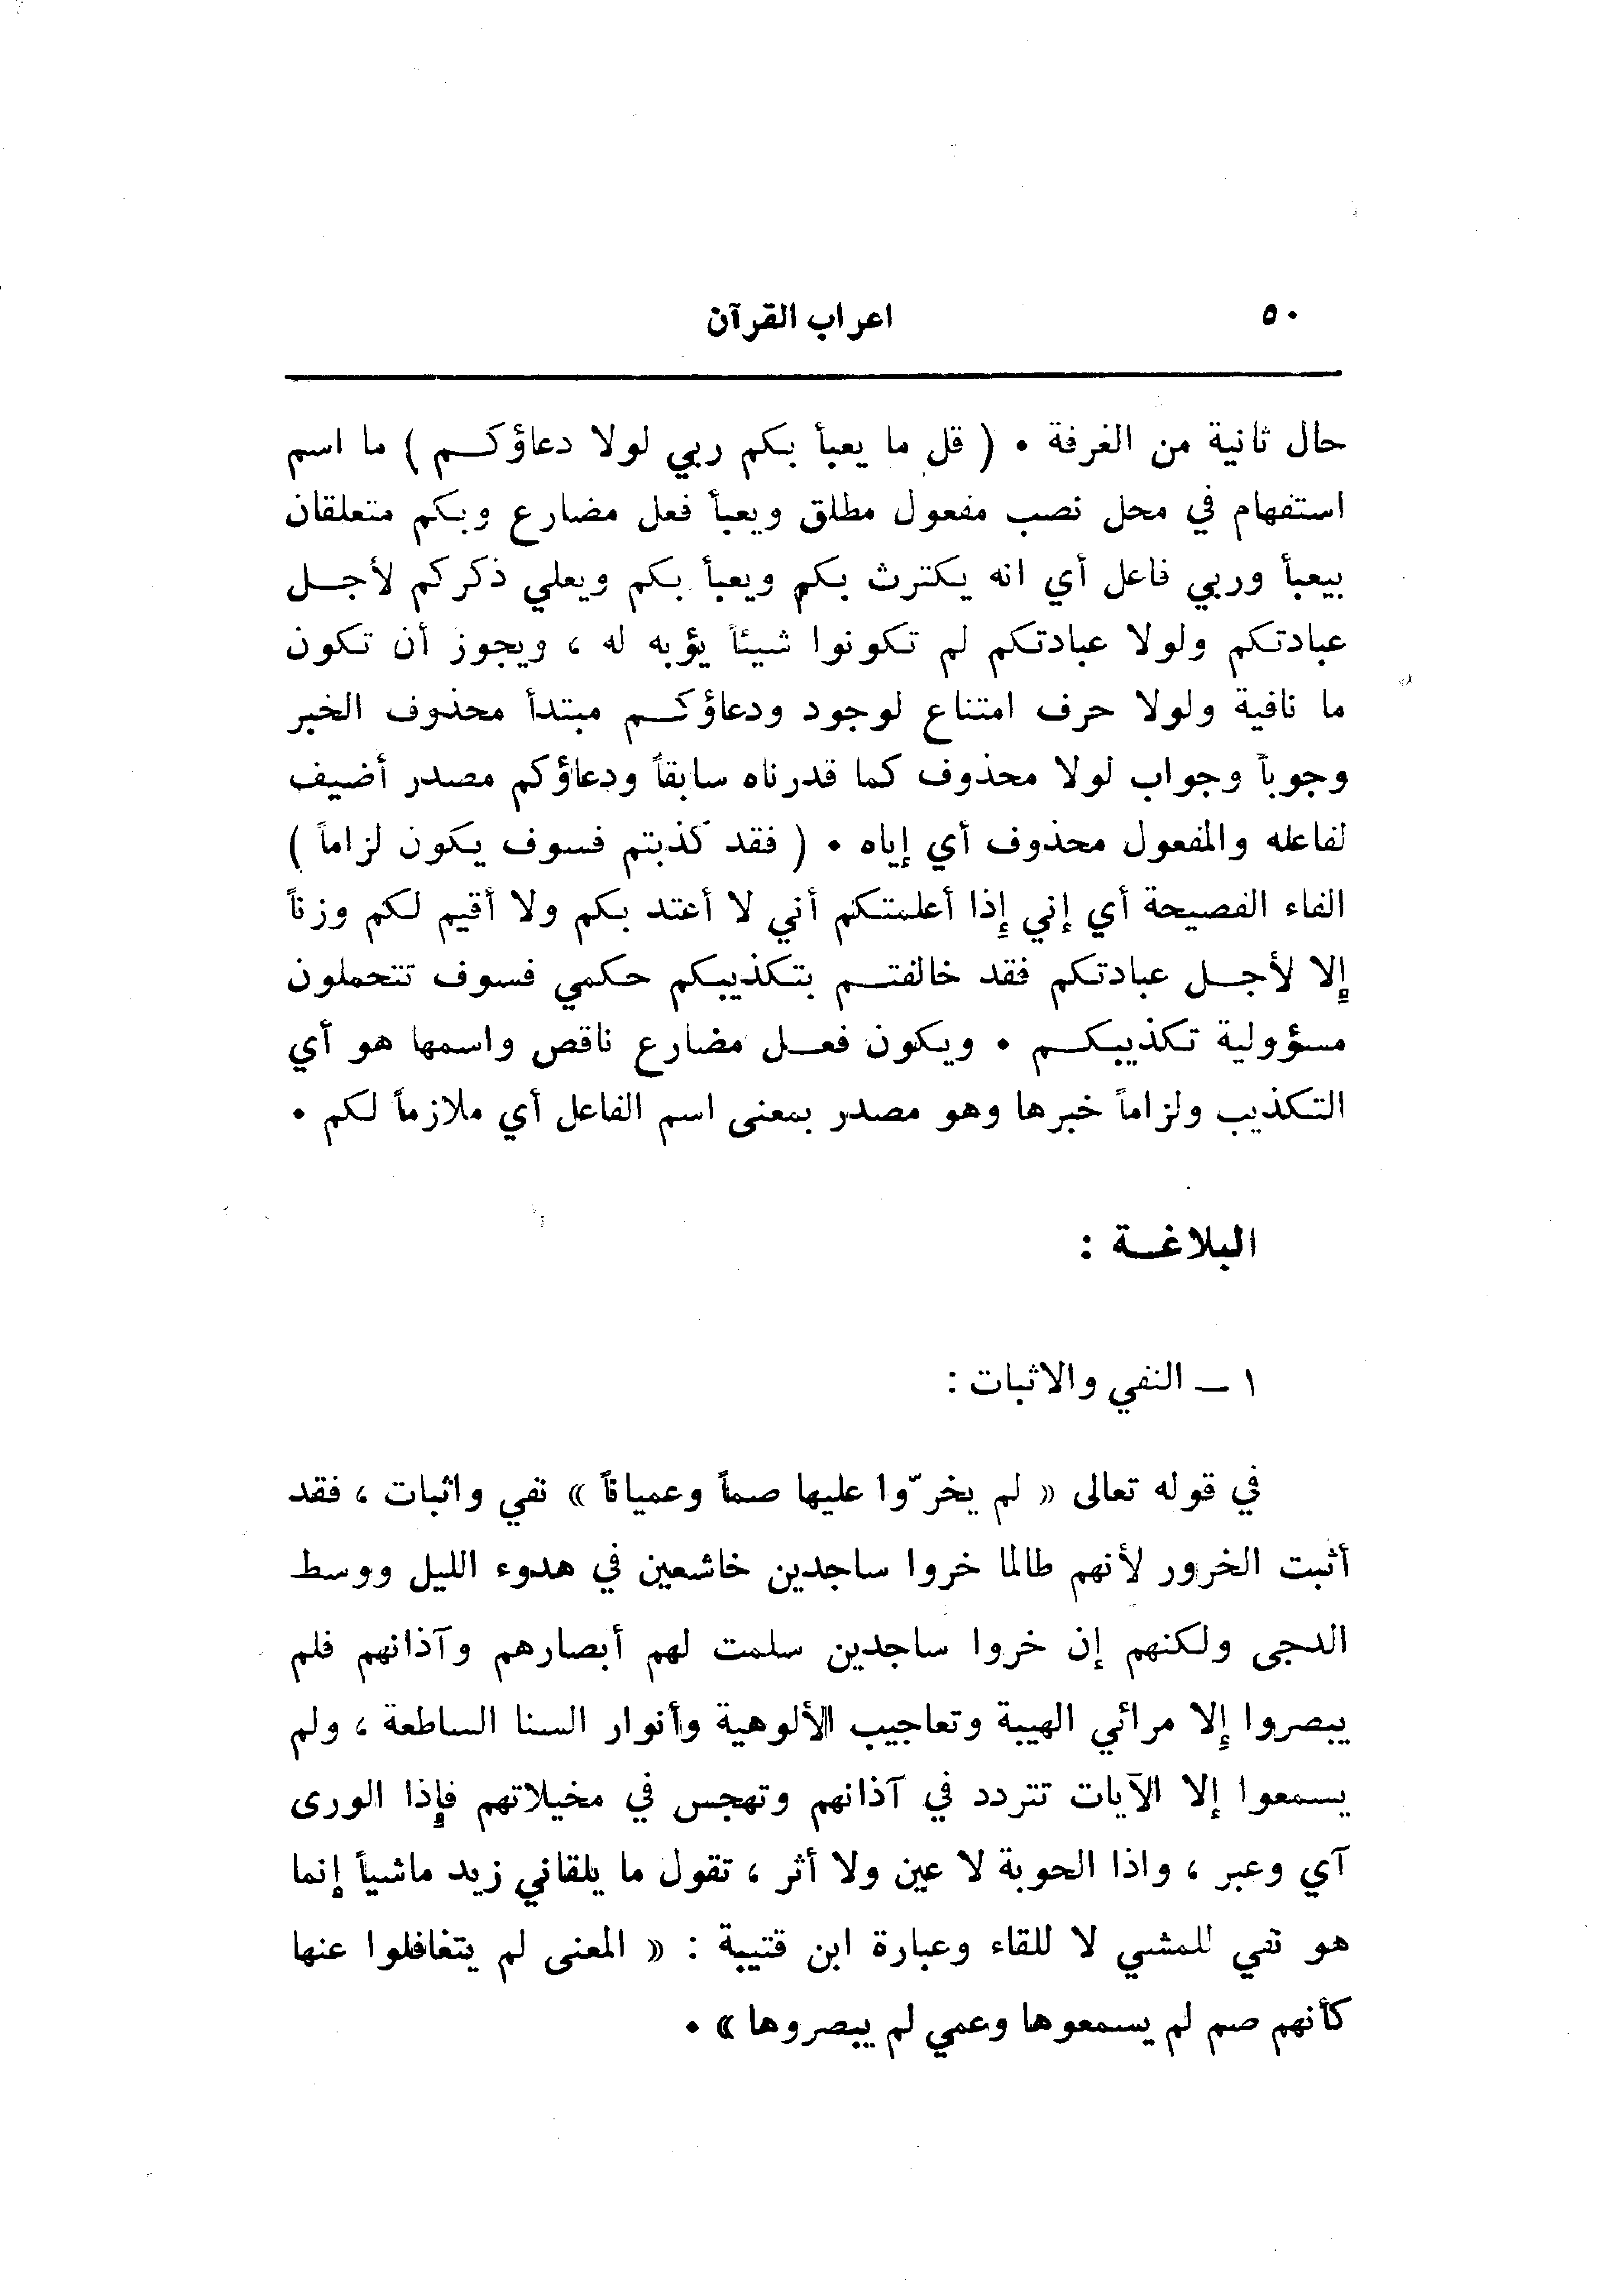 ٥٠ اعراب القرآن
حال ثانية من الغرفة . ( قل ما يعبأ بكم ربي لولا دعاؤكم ) ما اسم
استفهام في محل نصب مفعول مطلق ويعبأ فعل مضارع وبكم متعلقان
بيعبأ وربي فاعل أي انه يكترث بكم ويعبأ بكم ويعلي ذكركم لأجل
عبادتكم ولولا عبادتكم لم تكونوا شيئاً يؤبه له ، ويجوز أن تكون
ما نافية ولولا حرف امتناع لوجود ودعاؤكم مبتدأ محذوف الخبر
وجوباً وجواب لولا محذوف كما قدرناه سابقاً ودعاؤكم مصدر أضيف
لفاعله والمفعول محذوف أي إياه . ( فقد كذبتم فسوف يكون لزاماً )
الفاء الفصيحة أي إني إذا أعلمتكم أني لا أعتد بكم ولا أقيم لكم وزناً
إلا لأجل عبادتكم فقد خالفتم بتكذيبكم حكمي فسوف تتحملون
مسؤولية تكذيبكم . ويكون فعل مضارع ناقص واسمها هو أي
التكذيب ولزاماً خبرها وهو مصدر بمعنى اسم الفاعل أي ملازماً لكم .
البلاغة :
١ ـ النفي والاثبات :
في قوله تعالى « لم يخرّوا عليها صماً وعمياناً » نفي واثبات ، فقد
أثبت الخرور لأنهم طالما خروا ساجدين خاشعين في هدوء الليل ووسط
الدجى ولكنهم إن خروا ساجدين سلمت لهم أبصارهم وآذانهم فلم
يبصروا إلا مرائي الهيبة وتعاجيب الألوهية وأنوار السنا الساطعة ، ولم
يسمعوا إلا الآيات تتردد في آذانهم وتهجس في مخيلاتهم فإذا الورى
آي وعبر ، واذا الحوبة لا عين ولا أثر ، تقول ما يلقاني زيد ماشياً إنما
هو نفي للمشي لا للقاء وعبارة ابن قتيبة : « المعنى لم يتغافلوا عنها
كأنهم صم لم يسمعوها وعمي لم يبصروها » .